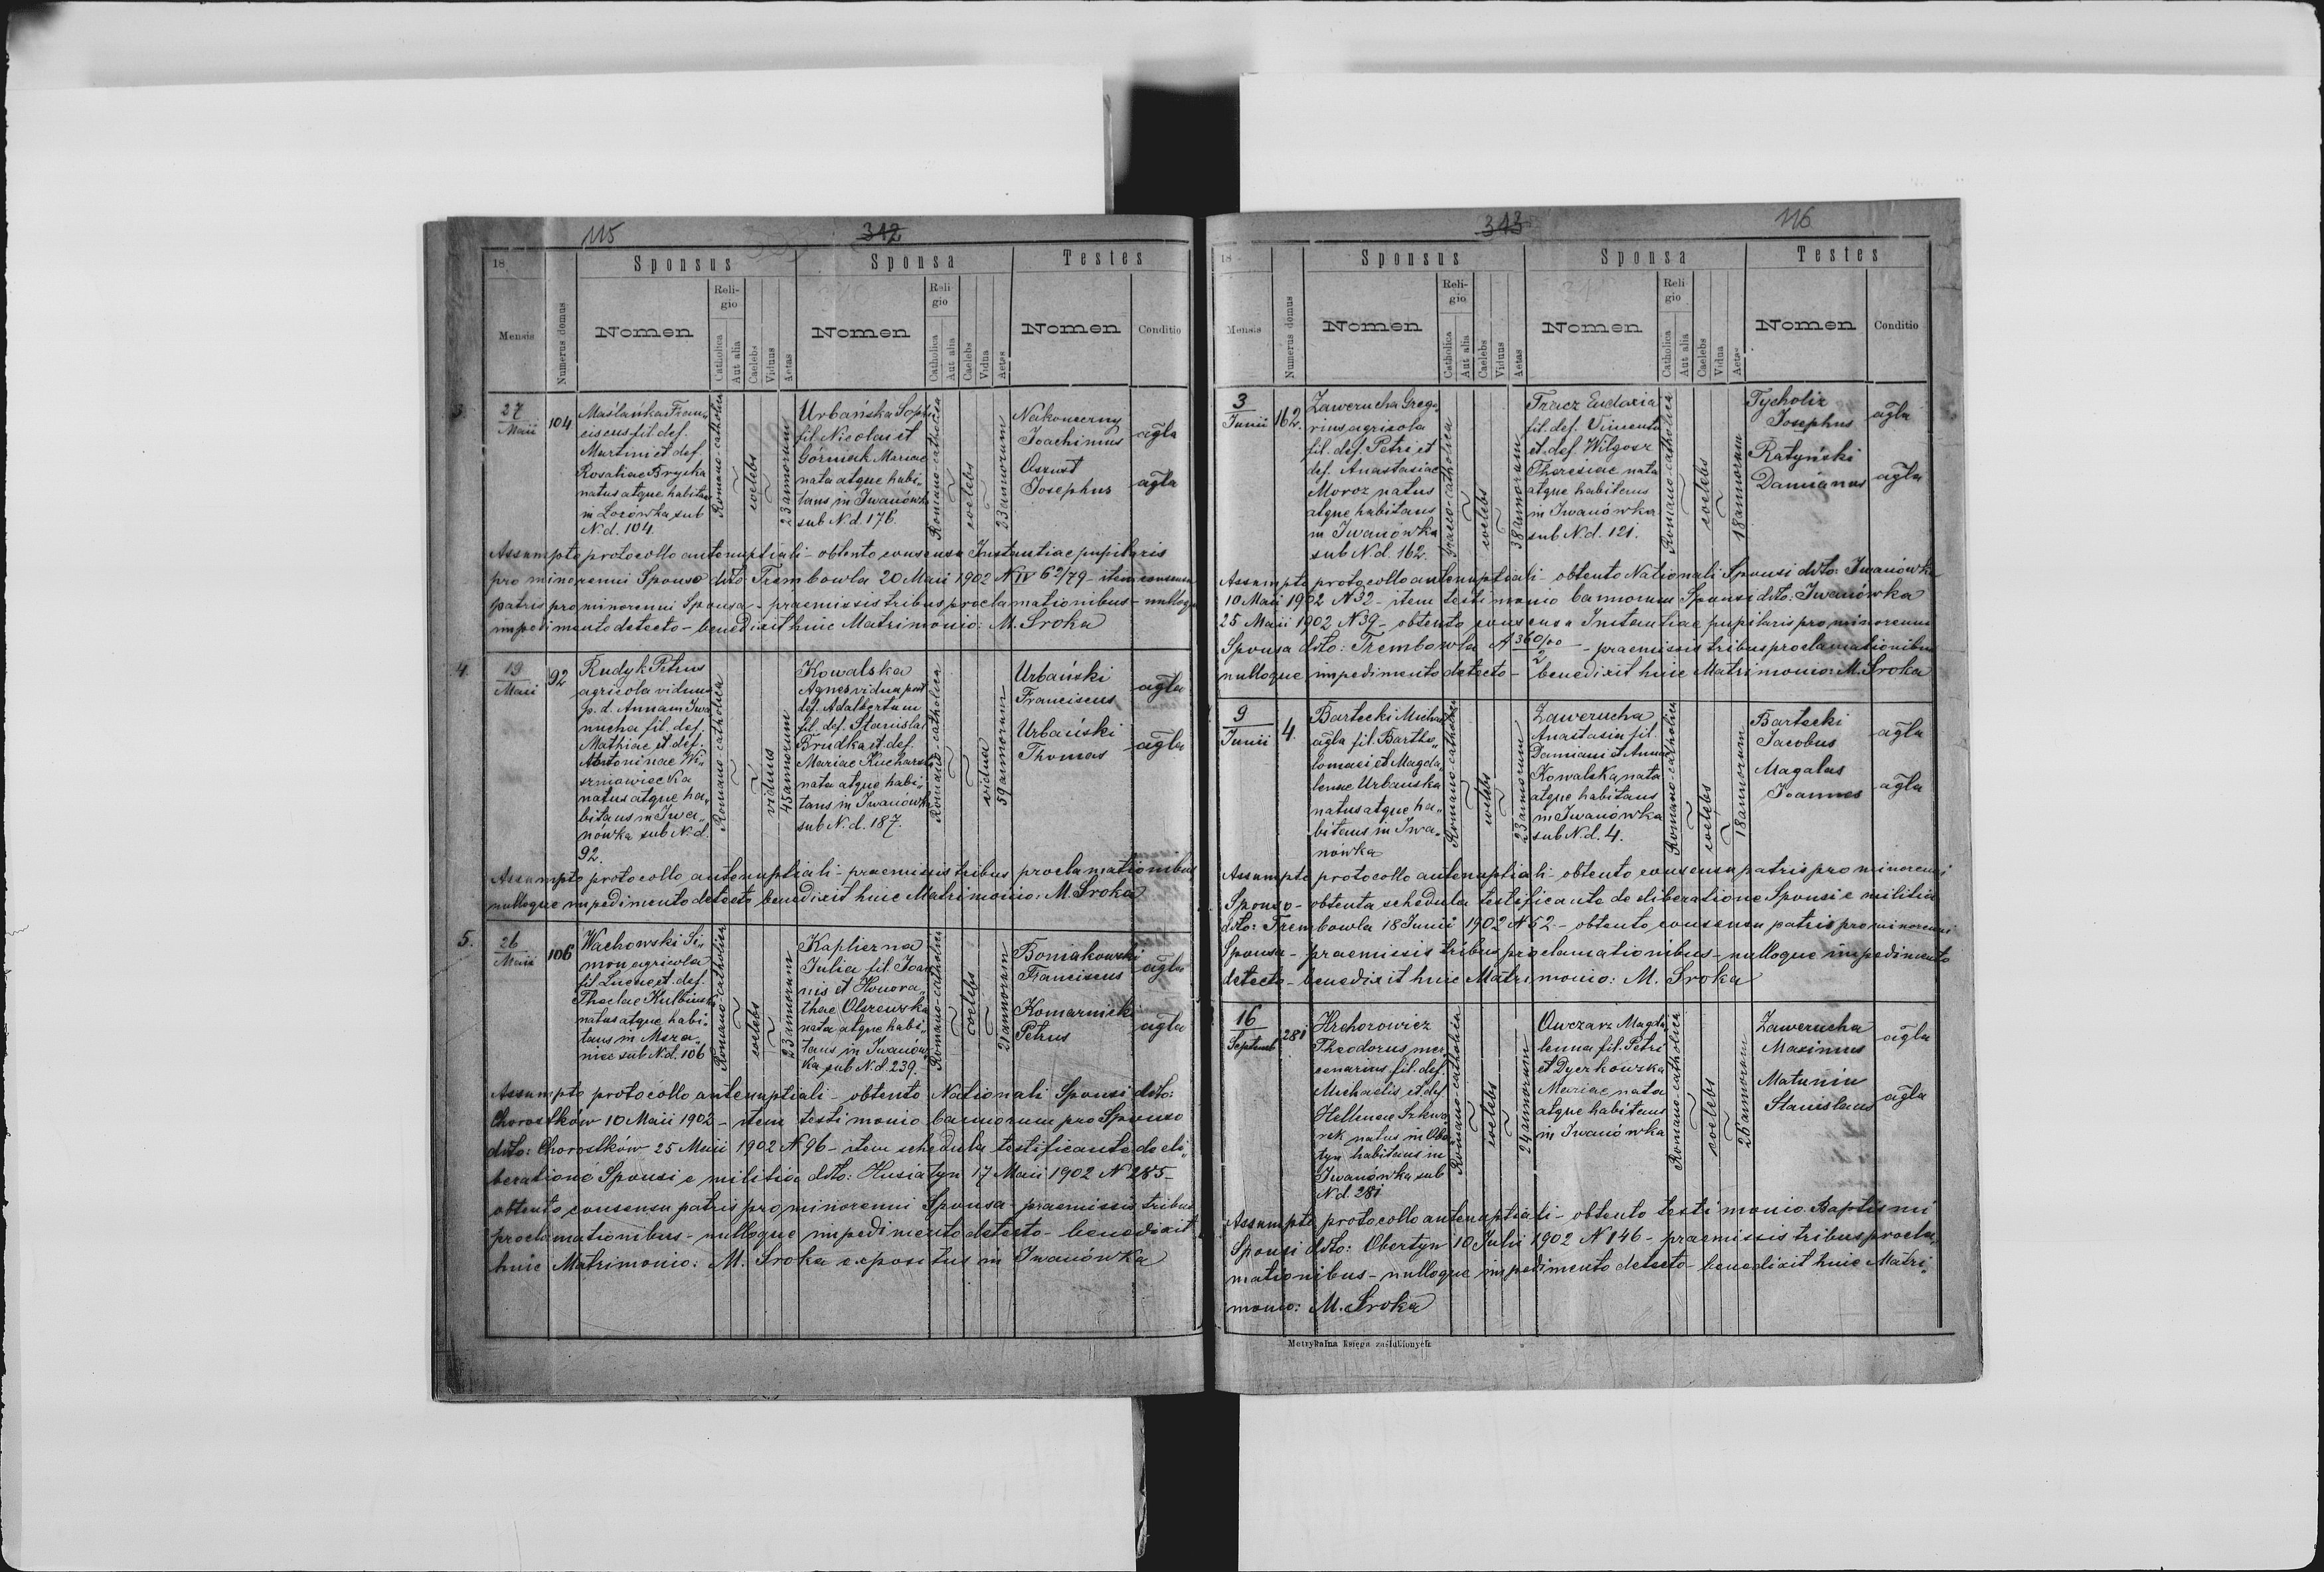 115
312
18
Sponsus
Sponsa
Testes
Mensis
Numerus domus
Nomen
Reli-
gio
Catholica
Aut alia
Caelebs
Viduus
Aetas
Nomen
Reli-
gio
Catholica
Aut alia
Caelebs
Vidua
Aetas
Nomen
Conditio
3.
27
Maii
104
Maślańka Fran„
ciscus fil. def.
Martini et def.
Rosaliae Brycka
natus atque habitans
in Łozówka sub
N. d. 104.
Romano-catholica
coelebs
23 annorum
Urbańska Soph
fil. Nicolai et
Górniak Mariae
nata atque habi„
tans in Iwanówka
sub N. d. 176.
Romano-catholica
coelebs
23 annorum
Nakoneczny
Joachimus
agla
Oszust
Josephus
agla
Assumpto protocollo antenuptiali - obtento consensu Instantiae pupilaris
pro minorenni Sponso dtto: Trembowla 20 Maii 1902 N IV 62/79 - item consensu
patris pro minorenni Sponsa - praemissis tribus proclamationibus - nulloque
impedimento detecto - benedixit huic Matrimonio: M. Sroka
4.
19
Maii
92
Rudyk Petrus
agricola viduus
p. d. Annam Iwa
nucha fil. def.
Mathiae et def.
Antoninae Wi„
szniowiecka
natus atque ha„
bitans in Iwa„
nówka sub N. d.
92.
Romano-catholica
viduus
45 annorum
Kowalska
Agnes vidua post
def. Adalbertum
fil. def. Stanislai
Brudka et def.
Mariae Kucharska
nata atque habi„
tans in Iwanówka
sub N. d. 187.
Romano-catholica
vidua
59 annorum
Urbański
Franciscus
agla
Urbański
Thomas
agla
Assumpto protocollo antenuptiali - praemissis tribus proclamationibus
nulloque impedimento detecto benedixit huic Matrimonio: M. Sroka
5.
26
Maii
106
Wachowski Si„
mon agricola
fil. Lucae et def.
Theclae Kulbińska
natus atque habi„
tans in Msza„
niec sub N. d. 106
Romano-catholica
coelebs
23 annorum
Kaplierna
Julia fil. Joan
nis et Honora„
thae Olszewska
nata atque habi„
tans in Iwanów„
ka sub N. d. 239.
Romano-catholica
coelebs
21 annorum
Boniakowski
Franciscus
agla
Komarnicki
Petrus
agla
Assumpto protocollo antenuptiali - obtento Nationali Sponsi dtto:
Chorostków 10 Maii 1902 - item testimonio bannorum pro Sponso
dtto: Chorostków 25 Maii 1902 N 96 - item schedula testificante de eli„
beratione Sponsi e militia dtto: Husiatyn 17 Maii 1902 N 285 -
obtento consensu patris pro minorenni Sponsa - praemissis tribus
proclamationibus - nulloque impedimento detecto - benedixit
huic Matrimonio: M. Sroka expositus in Iwanówka
343
116
18
Sponsus
Sponsa
Testes
Mensis
Numerus domus
Nomen
Reli-
gio
Catholica
Aut alia
Caelebs
Viduus
Aetas
Nomen
Reli-
gio
Catholica
Aut alia
Caelebs
Vidua
Aetas
Nomen
Conditio
3
Junii
162.
Zawerucha Grego„
rius agricola
fil. def. Petri et
def. Anastasiae
Moroz natus
atque habitans
in Iwanówka
sub N. d. 162.
Graeco-catholica
coelebs
38 annorum
Tracz Eudoxia
fil. def. Vincentii
et def. Wilgosz
Theresiae nata
atque habitans
in Iwanówka
sub N. d. 121.
Romano-catholica
coelebs
18 annorum
Tycholiz
Josephus
agla
Ratyński
Damianus
agla
Assumpto protocollo antenuptiali - obtento Nationali Sponsi dtto: Iwanówka
10 Maii 1902 N 32 - item testimonio bannorum Sponsi dtto: Iwanówka
25 Maii 1902 N 39 - obtento consensu Instantiae pupilaris pro minorenni
Sponsa dtto: Trembowla A 360/00 2 - praemissis tribus proclamationibus
nulloque impedimento detecto - benedixit huic Matrimonio: M. Sroka
9
Junii
4.
Bartecki Michael
agla fil. Bartho„
lomaei et Magda„
lenae Urbańska
natus atque ha„
bitans in Iwa„
nówka
Romano-catholica
coelebs
23 annorum
Zawerucha
Anastasia fil.
Damiani et Annae
Kowalska nata
atque habitans
in Iwanówka
sub N. d. 4.
Romano-catholica
coelebs
18 annorum
Bartecki
Jacobus
agla
Magalas
Joannes
agla
Assumpto protocollo antenuptiali - obtento consensu patris pro minorenni
Sponso - obtenta schedula testificante de eliberatione Sponsi e militia
dtto: Trembowla 18 Junii 1902 N 52 - obtento consensu patris pro minorenni
Sponsa - praemissis tribus proclamationibus - nulloque impedimento
detecto - benedixit huic Matrimonio: M. Sroka
16
Septemb
281
Hrehorowicz
Theodorus mer
cenarius fil. def.
Michaelis et def.
Helenae Szkwa
rek natus in Ober
tyn habitans in
Iwanówka sub
N. d. 281
Romano-catholica
coelebs
24 annorum
Owczarz Magda
lenna fil. Petri
et Dyczkowska
Mariae nata
atque habitans
in Iwanówka
Romano-catholica
coelebs
26 annorum
Zawerucha
Maximus
agla
Matuniu
Stanislaus
agla
Assumpto protocollo antenuptiali - obtento testimonio Baptismi
Sponsi dtto: Obertyn 10 Julii 1902 N 146 - praemissis tribus procla„
mationibus - nulloque impedimento detecto - benedixit huic Matri„
monio: M. Sroka
Metrykalna księga zaślubionych